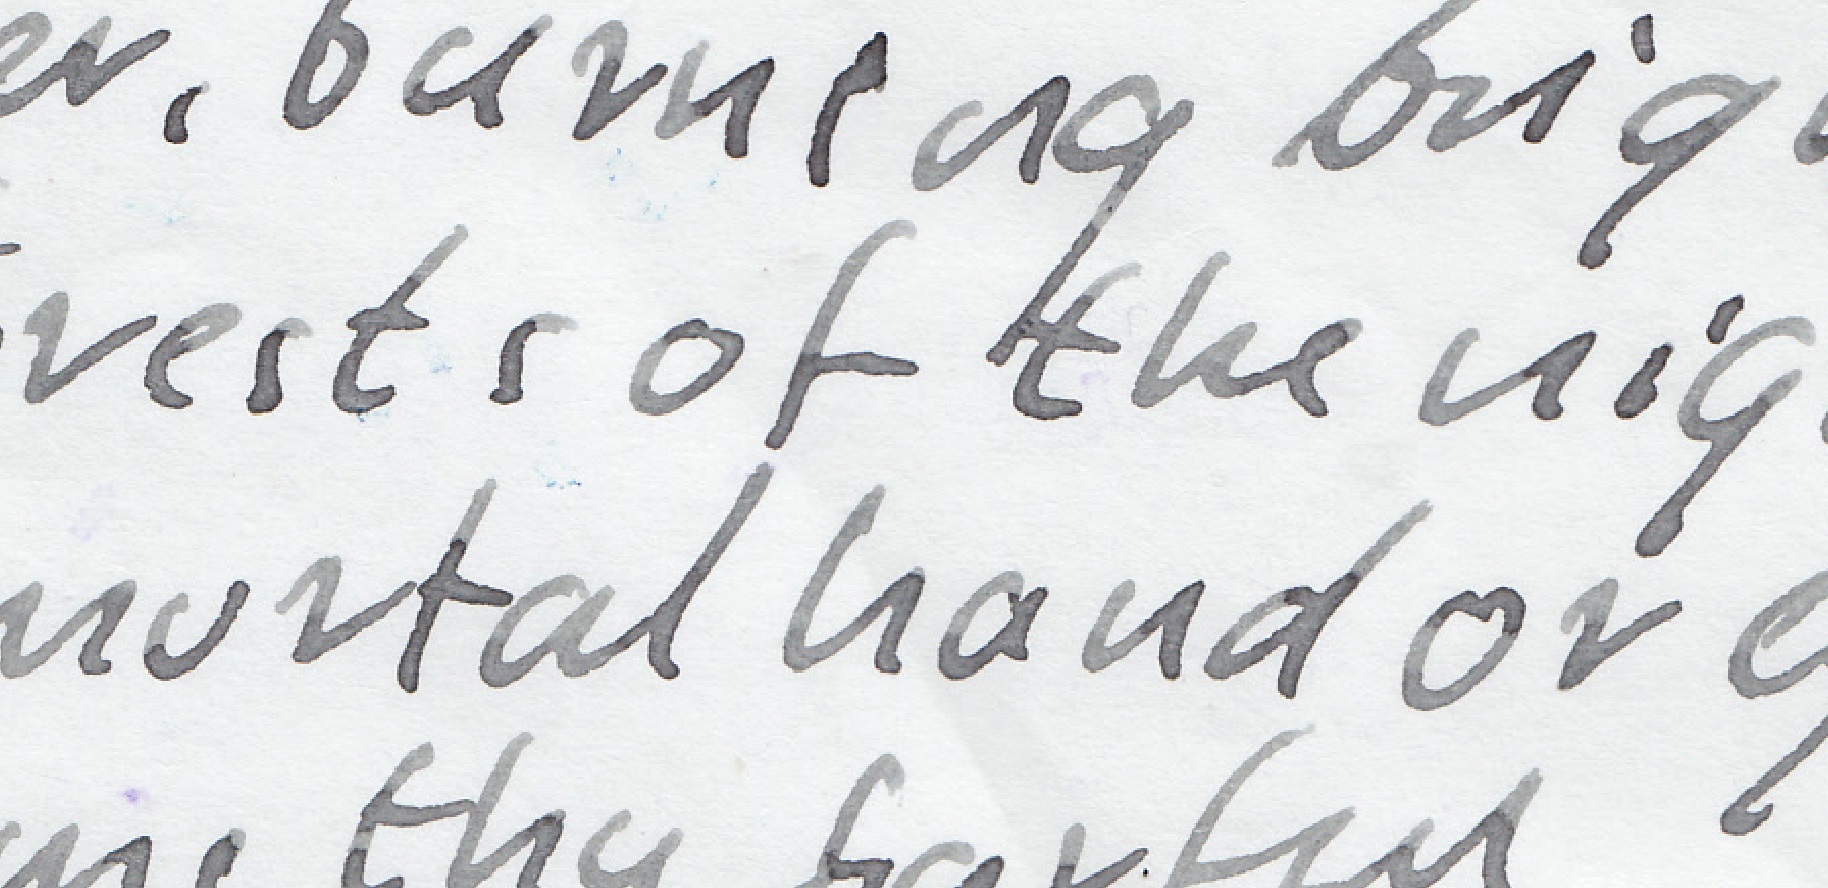 er, burning brig
rests of the nig
mortal hand or e
ame thy fearful